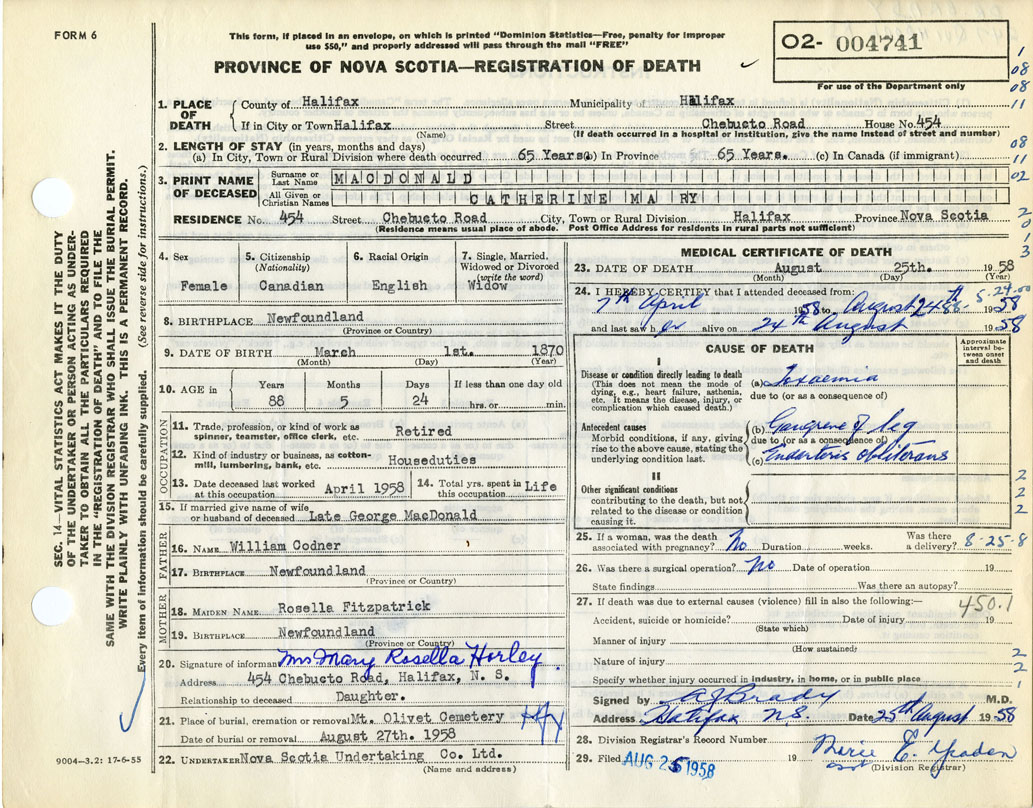 FORM 6
This form, if placed in an envelope, on which is printed "Dominion Statistics—Free, penalty for improper
use $50," and properly addressed will pass through the mail "FREE"
PROVINCE OF NOVA SCOTIA—REGISTRATION OF DEATH
O2- 004741
For use of the Department only
1. PLACE OF DEATH County of Halifax Municipality of Halifax
If in City or Town Halifax Street Chebucto Road House No. 454
(Name) (If death occurred in a hospital or institution, give the name instead of street and number)
2. LENGTH OF STAY (in years, months and days)
(a) In City, Town or Rural Division where death occurred 65 Years. (b) In Province 65 Years. (c) In Canada (if immigrant)
3. PRINT NAME OF DECEASED Surname or Last Name MACDONALD
All Given or Christian Names CATHERINE MARY
RESIDENCE No. 454 Street Chebucto Road City, Town or Rural Division Halifax Province Nova Scotia
(Residence means usual place of abode. Post Office Address for residents in rural parts not sufficient)
4. Sex 5. Citizenship (Nationality) 6. Racial Origin 7. Single, Married, Widowed or Divorced (write the word)
Female Canadian English Widow
8. BIRTHPLACE Newfoundland
(Province or Country)
9. DATE OF BIRTH March 1st. 1870
(Month) (Day) (Year)
10. AGE in Years Months Days If less than one day old
88 5 24 hrs. or min.
OCCUPATION
11. Trade, profession, or kind of work as spinner, teamster, office clerk, etc. Retired
12. Kind of industry or business, as cotton-mill, lumbering, bank, etc. Houseduties
13. Date deceased last worked at this occupation April 1958 14. Total yrs. spent in this occupation Life
15. If married give name of wife or husband of deceased Late George MacDonald
FATHER
16. NAME William Codner
17. BIRTHPLACE Newfoundland
(Province or Country)
MOTHER
18. MAIDEN NAME Rosella Fitzpatrick
19. BIRTHPLACE Newfoundland
(Province or Country)
20. Signature of informant Mrs Mary Rosella Horley.
Address 454 Chebucto Road, Halifax, N. S.
Relationship to deceased Daughter.
21. Place of burial, cremation or removal Mt. Olivet Cemetery Hfx
Date of burial or removal August 27th. 1958
22. UNDERTAKER Nova Scotia Undertaking Co. Ltd.
(Name and address)
MEDICAL CERTIFICATE OF DEATH
23. DATE OF DEATH August 25th. 1958
(Month) (Day) (Year)
24. I HEREBY CERTIFY that I attended deceased from:
7th April 1958 to August 24th 1958
and last saw her alive on 24th August 1958
CAUSE OF DEATH
Approximate interval between onset and death
I
Disease or condition directly leading to death
(This does not mean the mode of dying, e.g., heart failure, asthenia, etc. It means the disease, injury, or complication which caused death.)
(a) Toxaemia
due to (or as a consequence)
Antecedent causes
Morbid conditions, if any, giving rise to the above cause, stating the underlying condition last.
(b) Gangrene of leg
due to (or as a consequence of)
(c) Endarteris obliterans
II
Other significant conditions
contributing to the death, but not related to the disease or condition causing it.
25. If a woman, was the death associated with pregnancy? No Duration weeks. Was there a delivery? 8-25-8
26. Was there a surgical operation? No Date of operation 19
State findings Was there an autopsy?
27. If death was due to external causes (violence) fill in also the following:— 450.1
Accident, suicide or homicide? Date of injury 19
(State which)
Manner of injury
(How sustained)
Nature of injury
Specify whether injury occurred in industry, in home, or in public place
Signed by A J Brady M.D.
Address Halifax NS. Date 25th August 1958
28. Division Registrar's Record Number
29. Filed AUG 25 1958 19 Marie E.
(Division Registrar)
SEC. 14—VITAL STATISTICS ACT MAKES IT THE DUTY
OF THE UNDERTAKER OR PERSON ACTING AS UNDER-
TAKER TO OBTAIN ALL THE PARTICULARS REQUIRED
IN THE "REGISTRATION OF DEATH" AND TO FILE THE
SAME WITH THE DIVISION REGISTRAR WHO SHALL ISSUE THE BURIAL PERMIT.
WRITE PLAINLY WITH UNFADING INK. THIS IS A PERMANENT RECORD.
Every item of information should be carefully supplied. (See reverse side for instructions.)
9004—3.2: 17-6-55
1
08
08
11
08
11
02
2
0
1
3
2
2
2
2
1